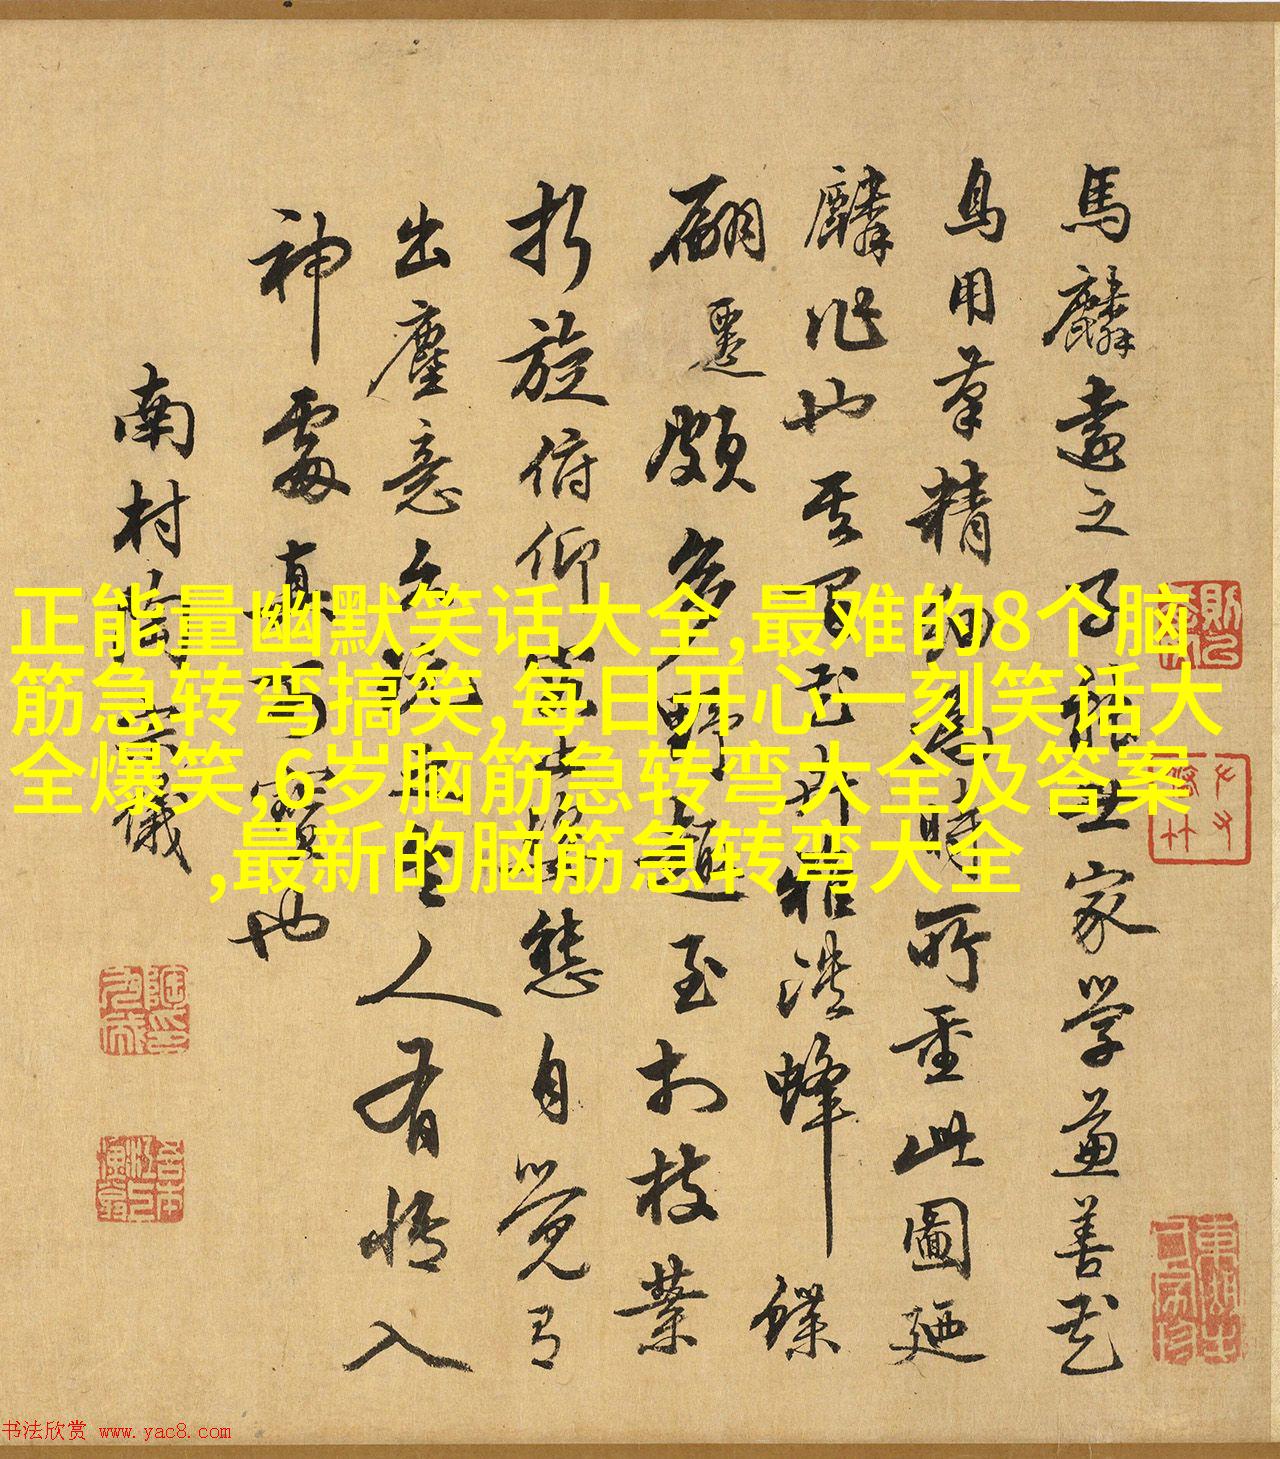 馬麟遠之子世家學畫善花
鳥用筆精的為時所重此圖廼
麟作也其間花卉蜂蝶
翩躚頗多野趣至於枝葉
折旋俯仰態自覺有
出塵意人有情入
神處真可寶也
南村陶宗儀
正能量幽默笑话大全,最难的8个脑
筋急转弯搞笑,每日开心一刻笑话大
全爆笑,6岁脑筋急转弯大全及答案
,最新的脑筋急转弯大全
书法欣赏 www.yac8.com